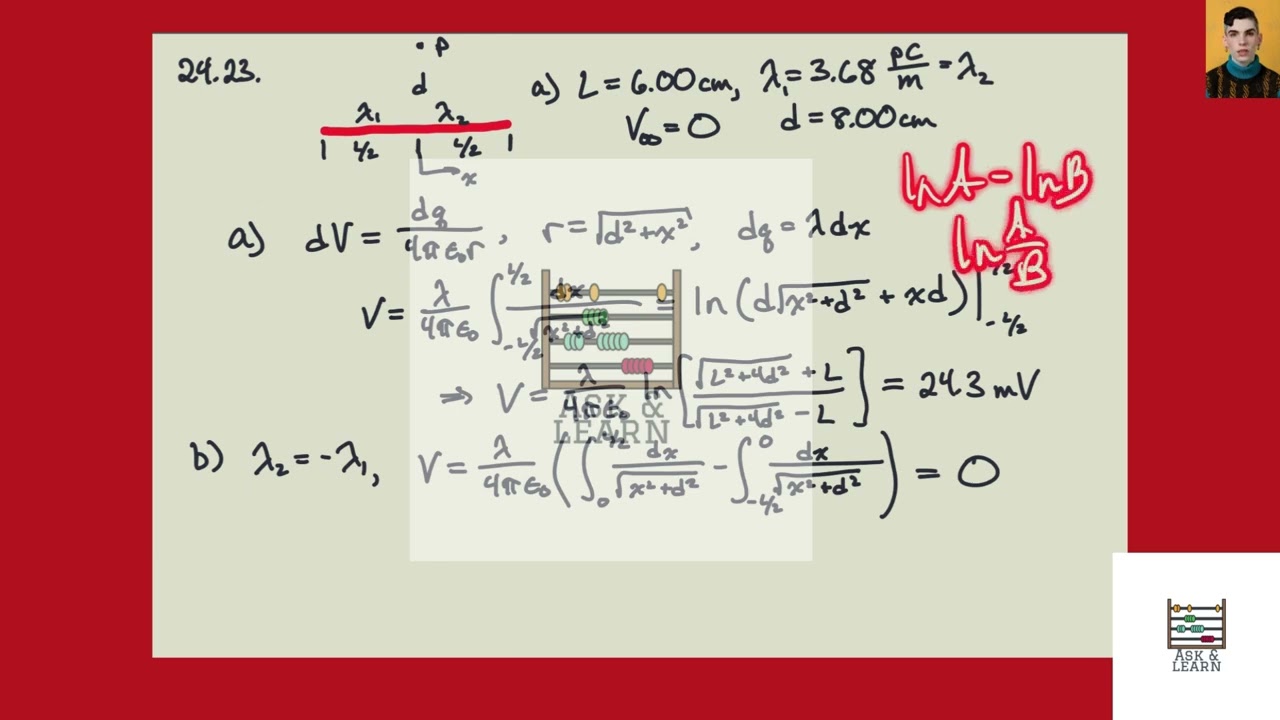 24.23.
• P
d
λ₁ λ₂
L/2 L/2
x
a) L = 6.00cm, λ₁ = 3.68 pC/m = λ₂
V∞ = 0 d = 8.00cm
ln A - ln B
ln A/B
a) dV = dq/4πε₀r, r = √(d²+x²), dq = λdx
V = λ/4πε₀ ∫_{-L/2}^{L/2} dx/√(x²+d²) = ln (d√(x²+d²) + xd) |_{-L/2}^{L/2}
⇒ V = λ/4πε₀ ln [(√(L²+4d²) + L)/(√(L²+4d²) - L)] = 24.3 mV
b) λ₂ = -λ₁, V = λ/4πε₀ (∫₀^{L/2} dx/√(x²+d²) - ∫_{-L/2}^0 dx/√(x²+d²)) = 0
ASK &
LEARN
ASK &
LEARN